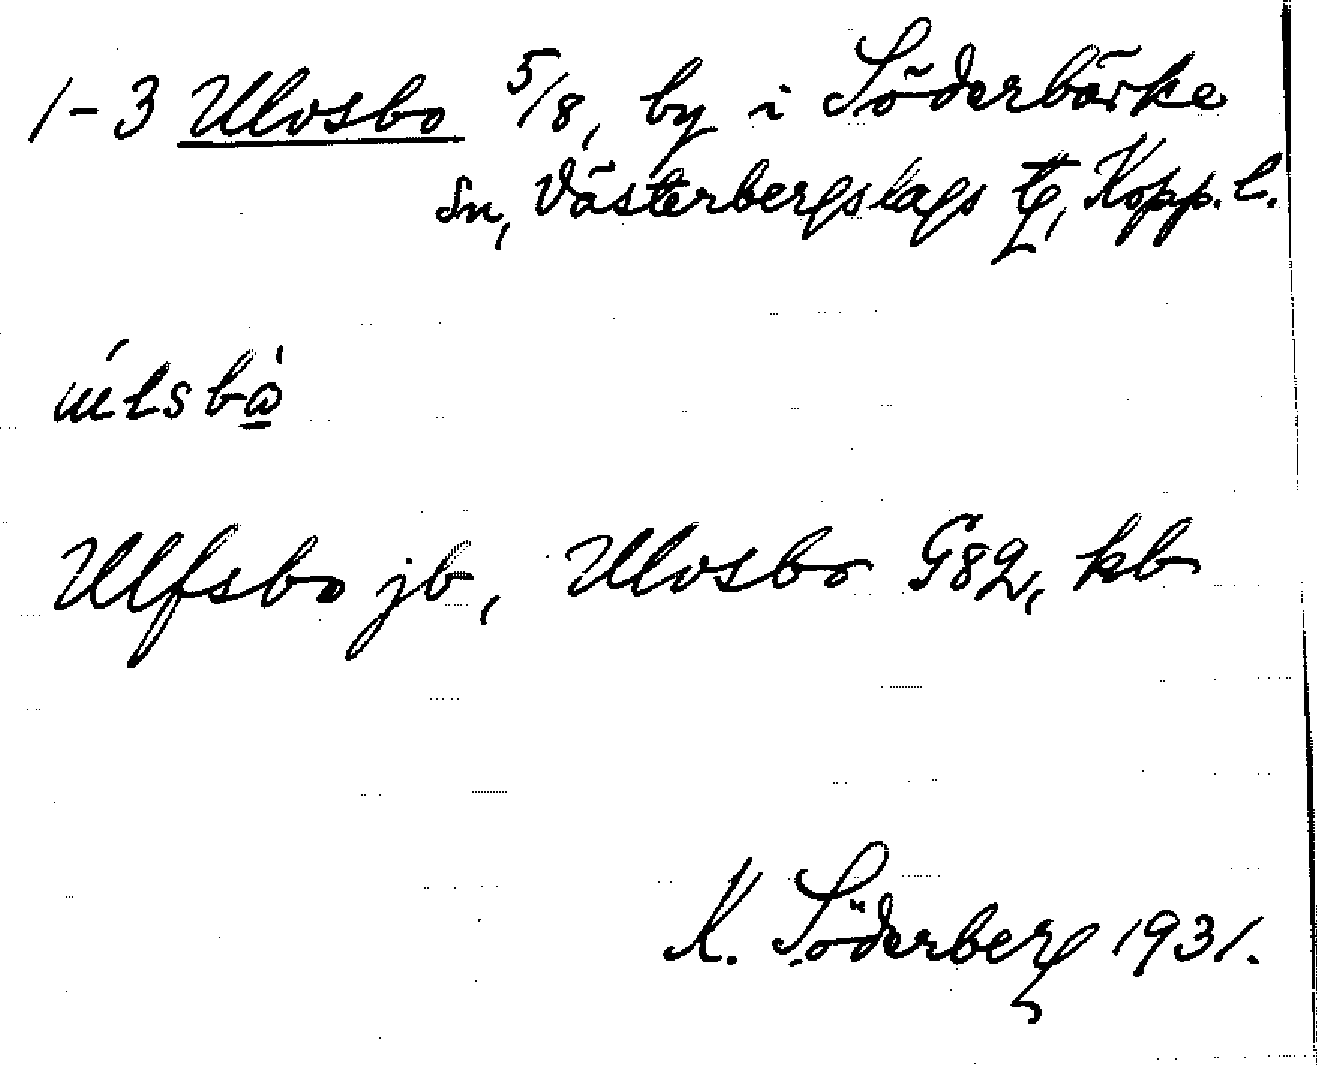 1-3 Ulvsbo 5/8, by i Söderbärke
sn, Västerbergslags tg, Kopp. l.
Ulfsbo jb, Ulvsbo G82, kb
K. Söderberg 1931.